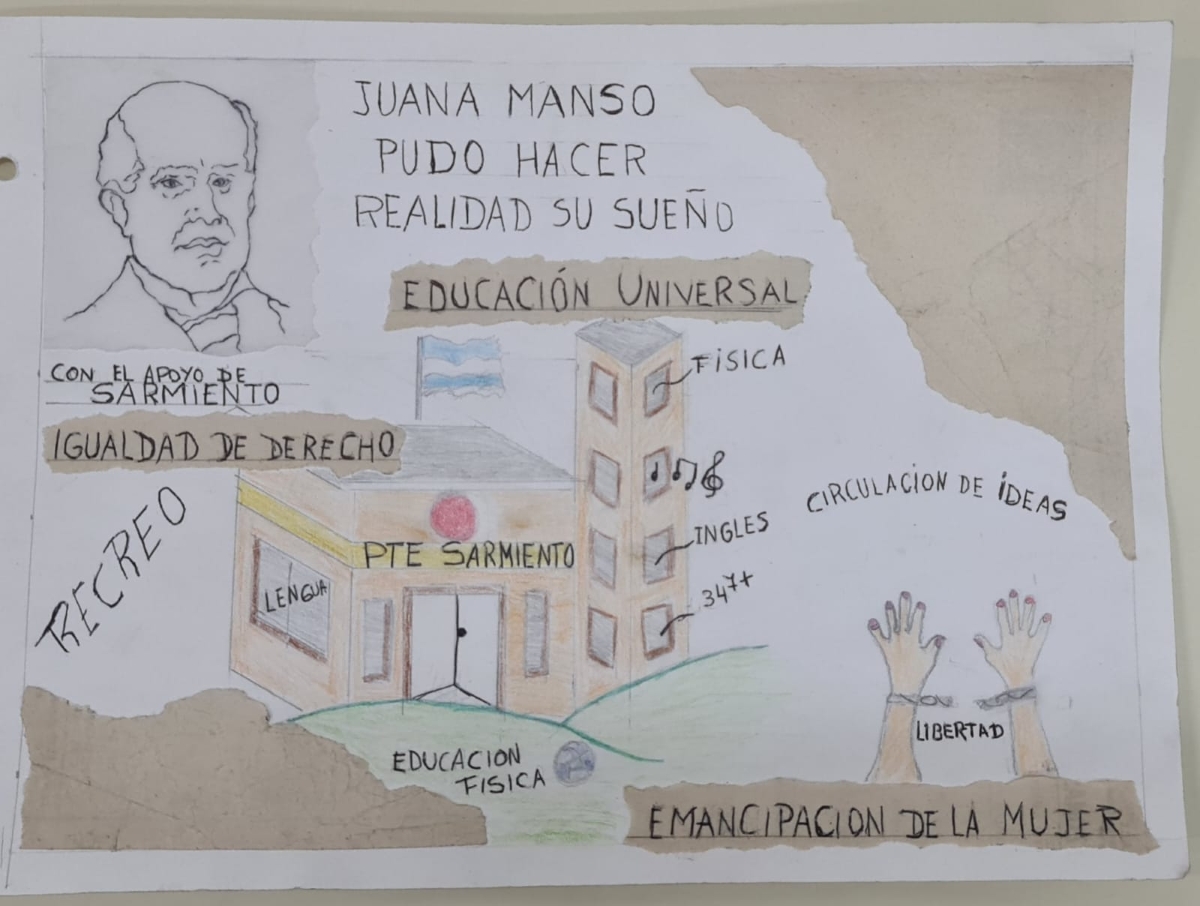 JUANA MANSO
PUDO HACER
REALIDAD SU SUEÑO
EDUCACIÓN UNIVERSAL
CON EL APOYO DE
SARMIENTO
IGUALDAD DE DERECHO
RECREO
FÍSICA
INGLES
347+
PTE SARMIENTO
LENGUA
CIRCULACION DE IDEAS
LIBERTAD
EDUCACION
FISICA
EMANCIPACION DE LA MUJER